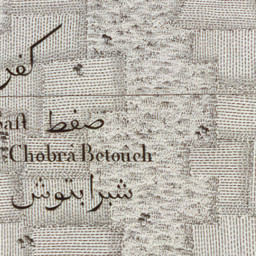 كفر
صفط
Chobrá Betouch
شبرا بتوش